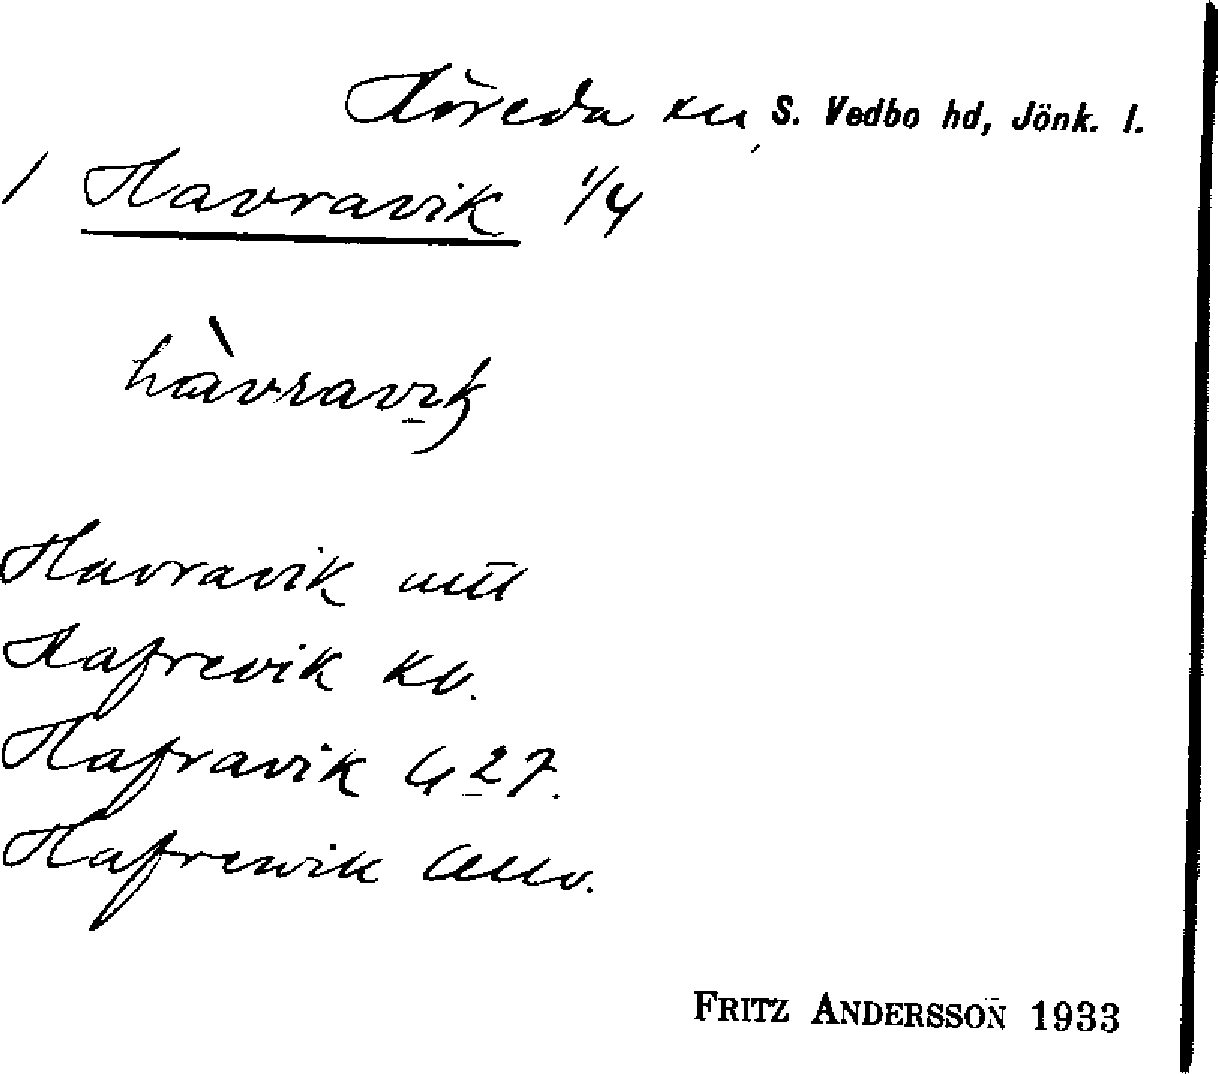 Höreda sn, S. Vedbo hd, Jönk. l.
1 Havravik 1/4
hàvravik
Havravik
Hafrevik
Hafravik G 27.
Hafrewik
FRITZ ANDERSSON 1933